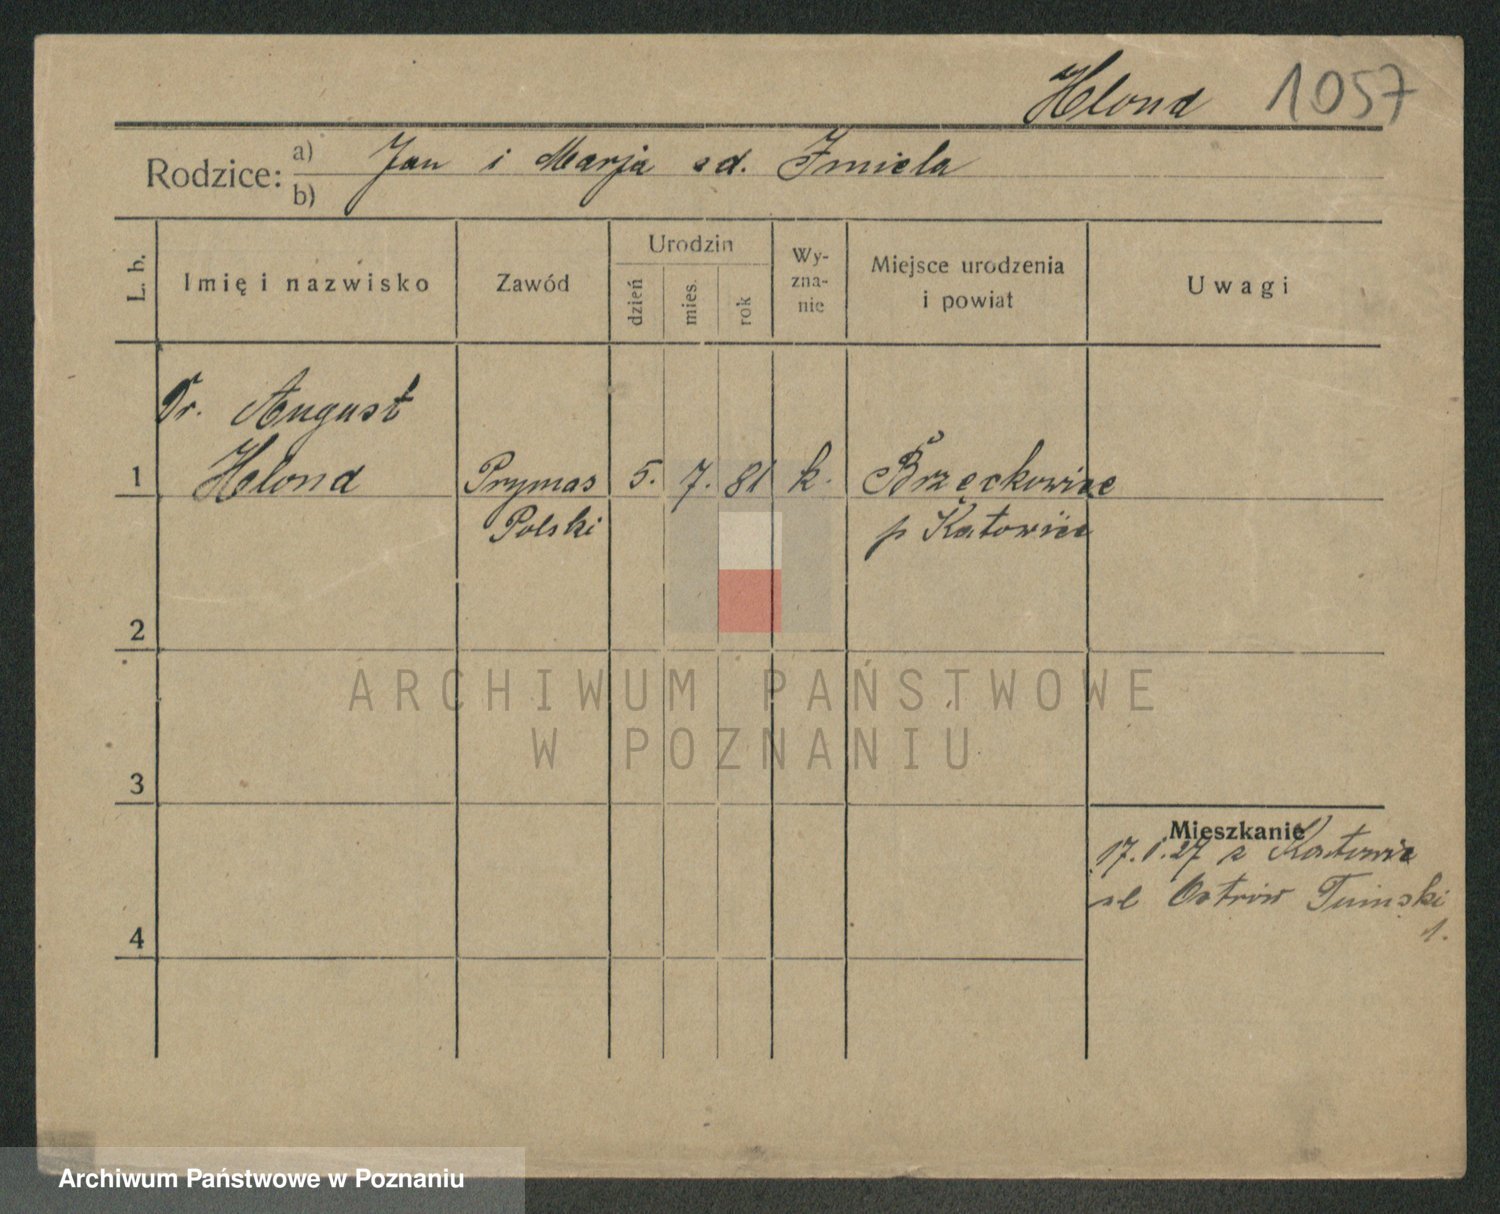 Hlond 1057
Rodzice: a) Jan i Marja
b)
L. b.
Imię i nazwisko
Zawód
Urodzin
dzień
mies.
rok
Wy-
zna-
nie
Miejsce urodzenia
i powiat
Uwagi
Dr. August
1 Hlond Prymas 5. 7. 81 k. Brzęckowice
Polski p Katowice
2
ARCHIWUM PAŃSTWOWE
W POZNANIU
3
Mieszkanie
17.1.27 z Katowic
Ostrów Tumski
1.
4
Archiwum Państwowe w Poznaniu